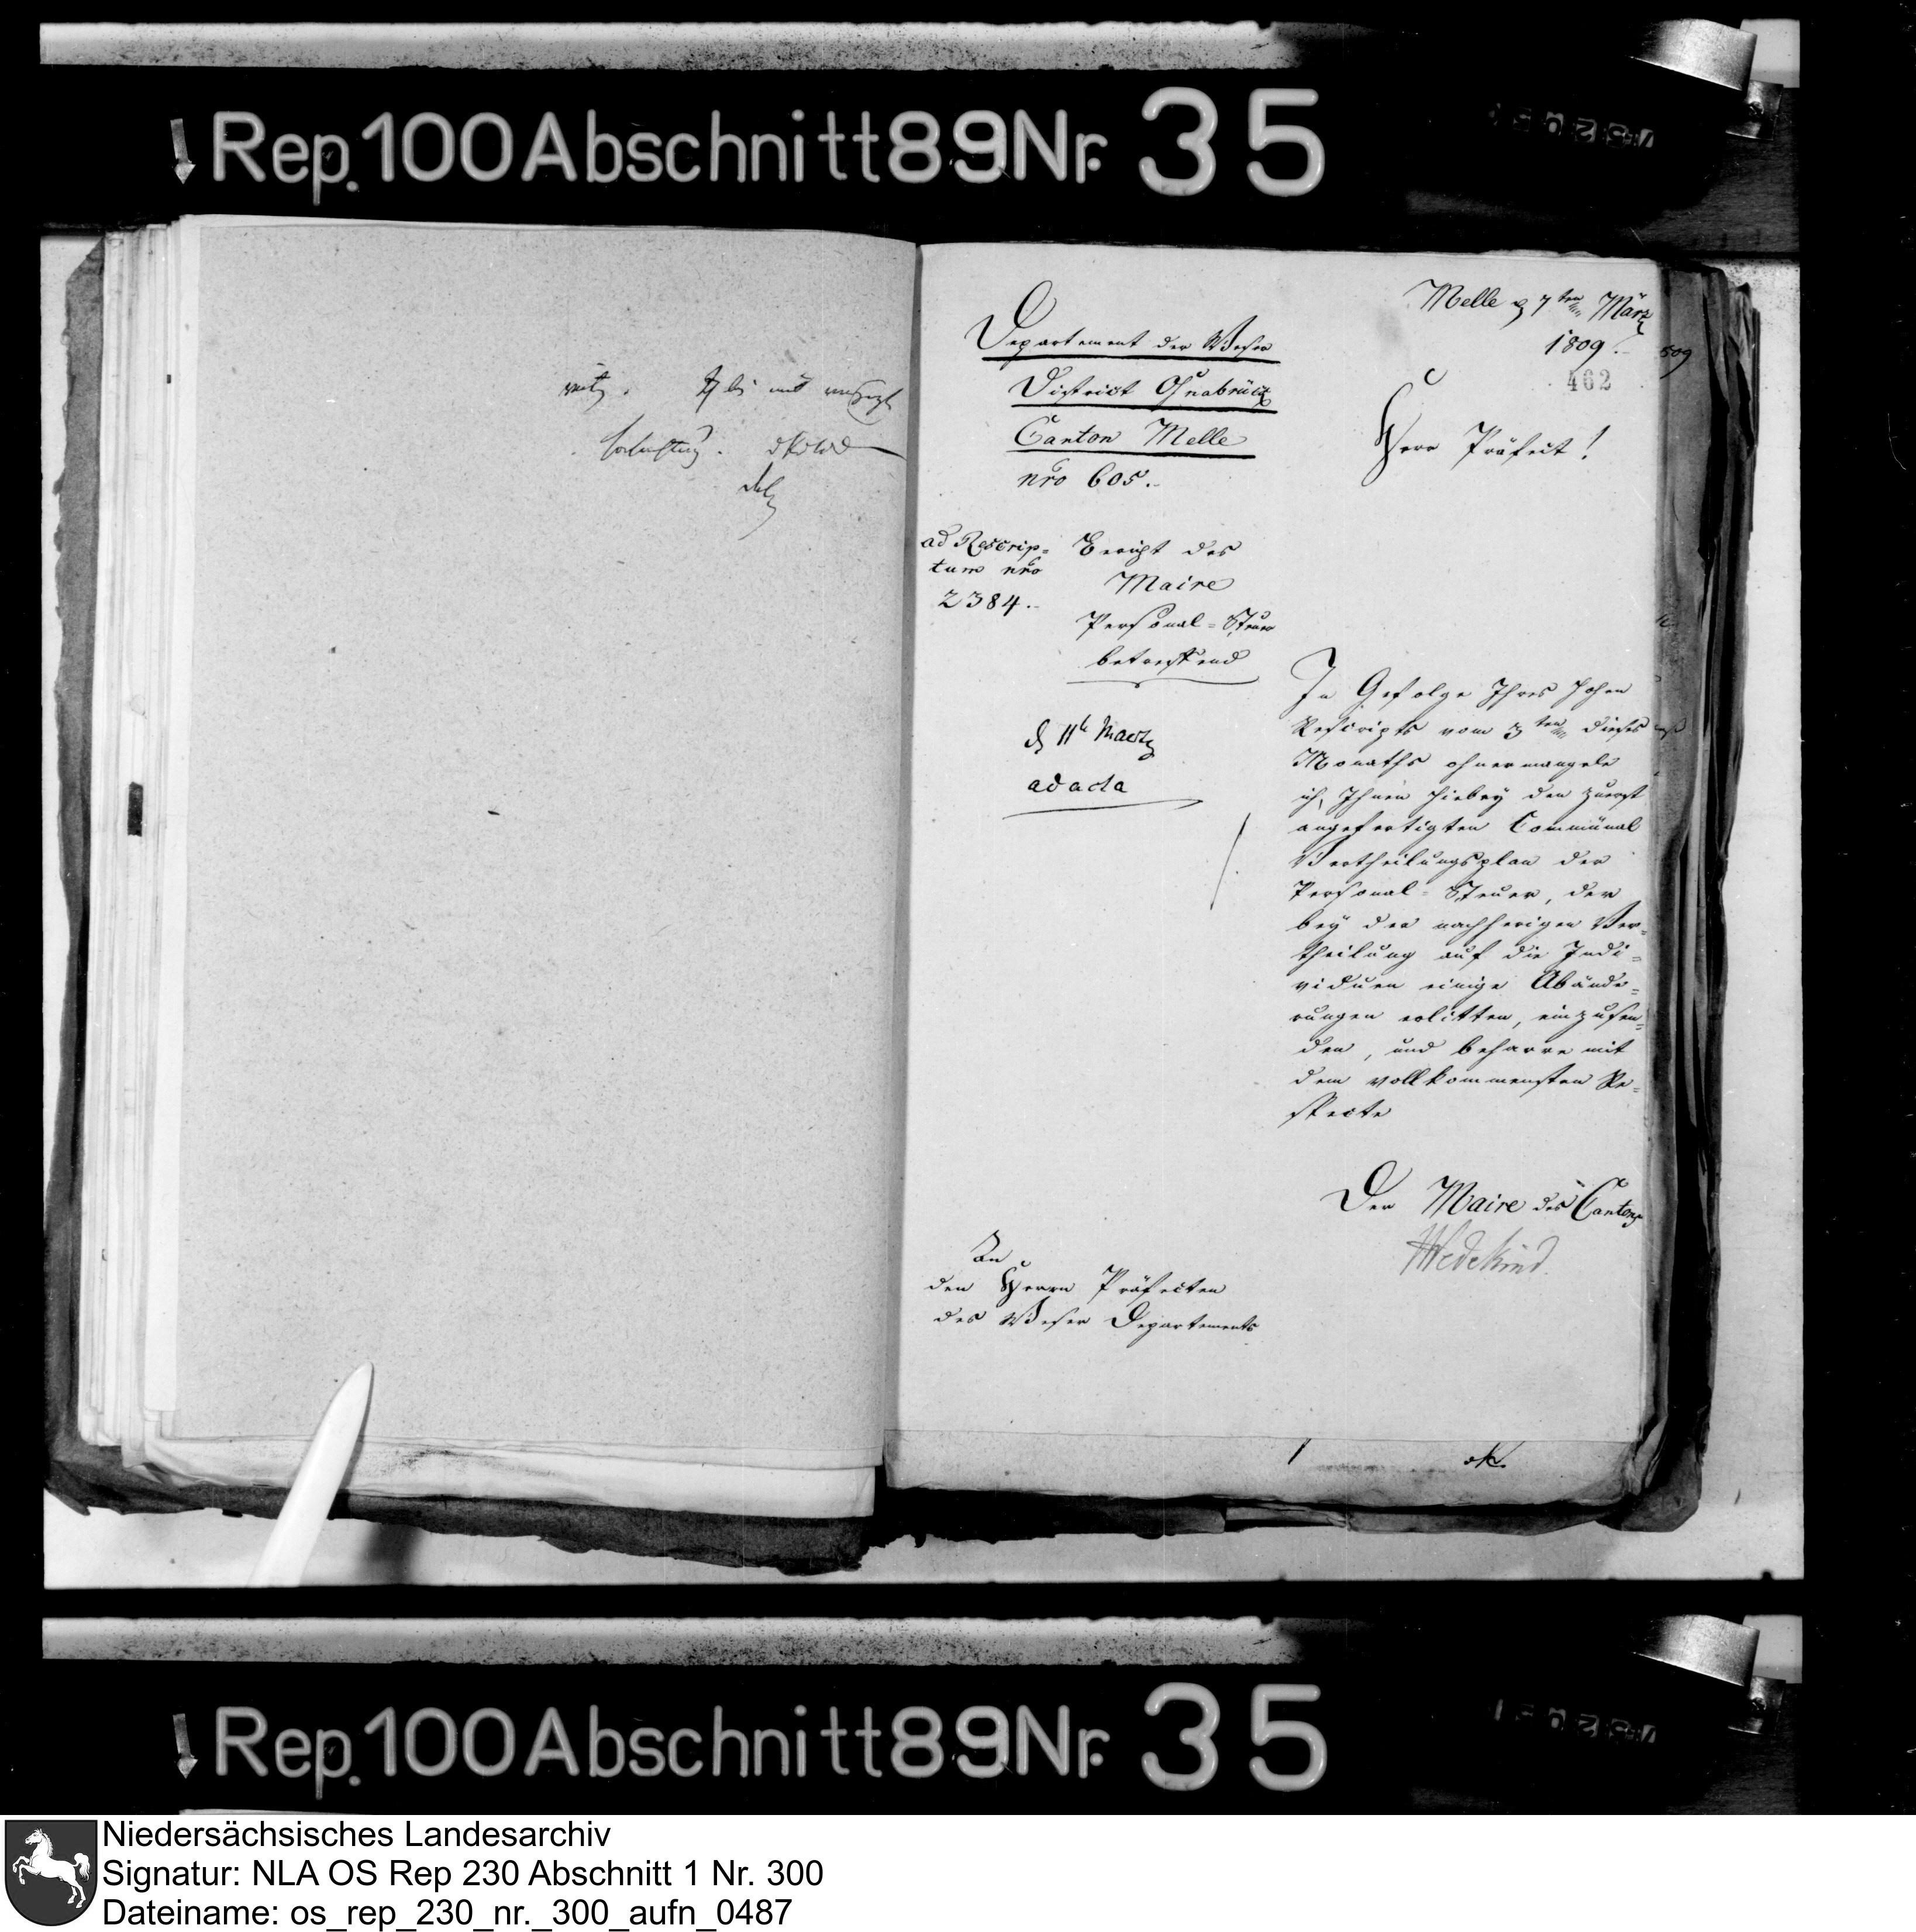 Rep. 100 Abschnitt 89 Nr. 35
Melle d 7ten März
1809.
509
462
Departement der Weser
District Osnabrück
Canton Melle
nro 605.
Herr Präfect!
ad Rescrip=
tum nro
2384.
Bericht des
Maire
Personal-Steuer
betreffend
d 11t Maertz
ad acta
In Gefolge Ihres hohen
Rescripts vom 3ten dieses
Monaths ohnermangele
ich, Ihnen hiebey den zuerst
angefertigten Communal
Vertheilungsplan der
Personal-Steuer, der
bey der nachherigen Ver=
theilung auf die Indi=
viduen einige Abände=
rungen erlitten, einzusen=
den, und beharre mit
dem vollkommensten Re=
specte
Der Maire des Cantons
Wedekind.
An
den Herrn Präfecten
des Weser Departements
Rep. 100 Abschnitt 89 Nr. 35
Niedersächsisches Landesarchiv
Signatur: NLA OS Rep 230 Abschnitt 1 Nr. 300
Dateiname: os_rep_230_nr._300_aufn_0487